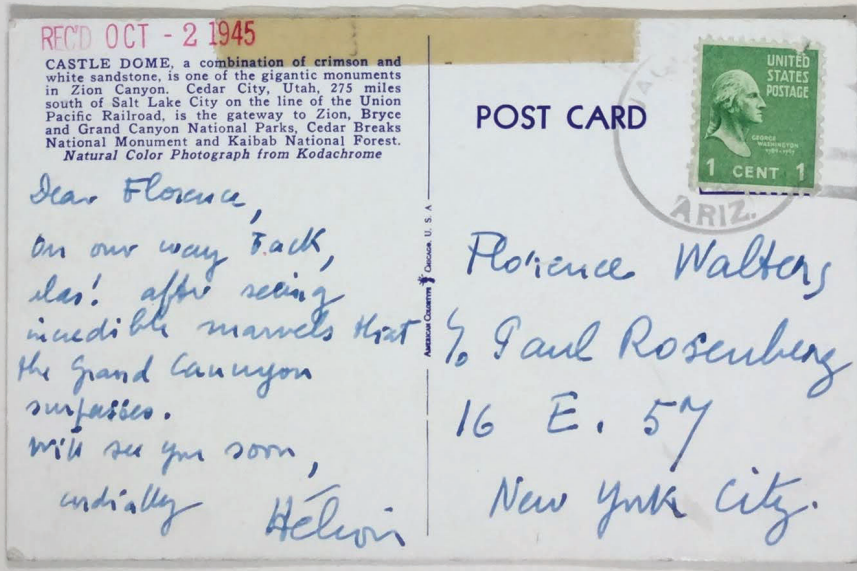 REC'D OCT - 2 1945
CASTLE DOME, a combination of crimson and
white sandstone, is one of the gigantic monuments
in Zion Canyon. Cedar City, Utah, 275 miles
south of Salt Lake City on the line of the Union
Pacific Railroad, is the gateway to Zion, Bryce
and Grand Canyon National Parks, Cedar Breaks
National Monument and Kaibab National Forest.
Natural Color Photograph from Kodachrome
Dear Florence,
On our way back,
alas! after seeing
incredible marvels that
the Grand Cannyon
surpasses.
Will see you soon,
cordially
Hélion
AMERICAN COLORTYPE CHICAGO, U. S. A
POST CARD
UNITED
STATES
POSTAGE
GEORGE
WASHINGTON
1789-1797
1 CENT 1
ARIZ.
Florence Walters
c/o Paul Rosenberg
16 E. 57
New York City.